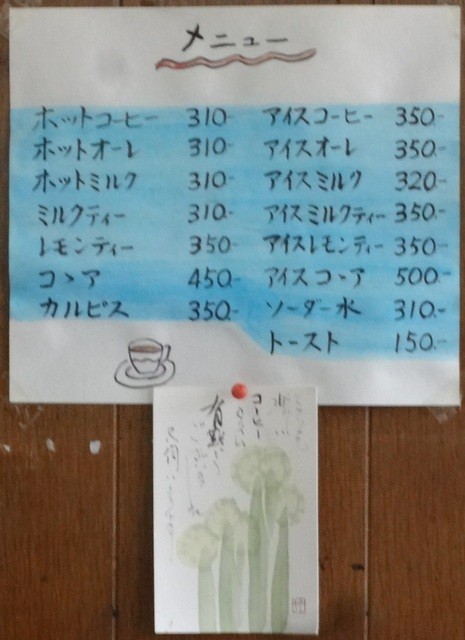 メニュー
ホットコーヒー 310-
ホットオーレ 310-
ホットミルク 310-
ミルクティー 310-
レモンティー 350-
コヽア 450-
カルピス 350-
アイスコーヒー 350-
アイスオーレ 350-
アイスミルク 320-
アイスミルクティー 350-
アイスレモンティー 350-
アイスコヽア 500-
ソーダー水 310-
トースト 150-
コーヒー